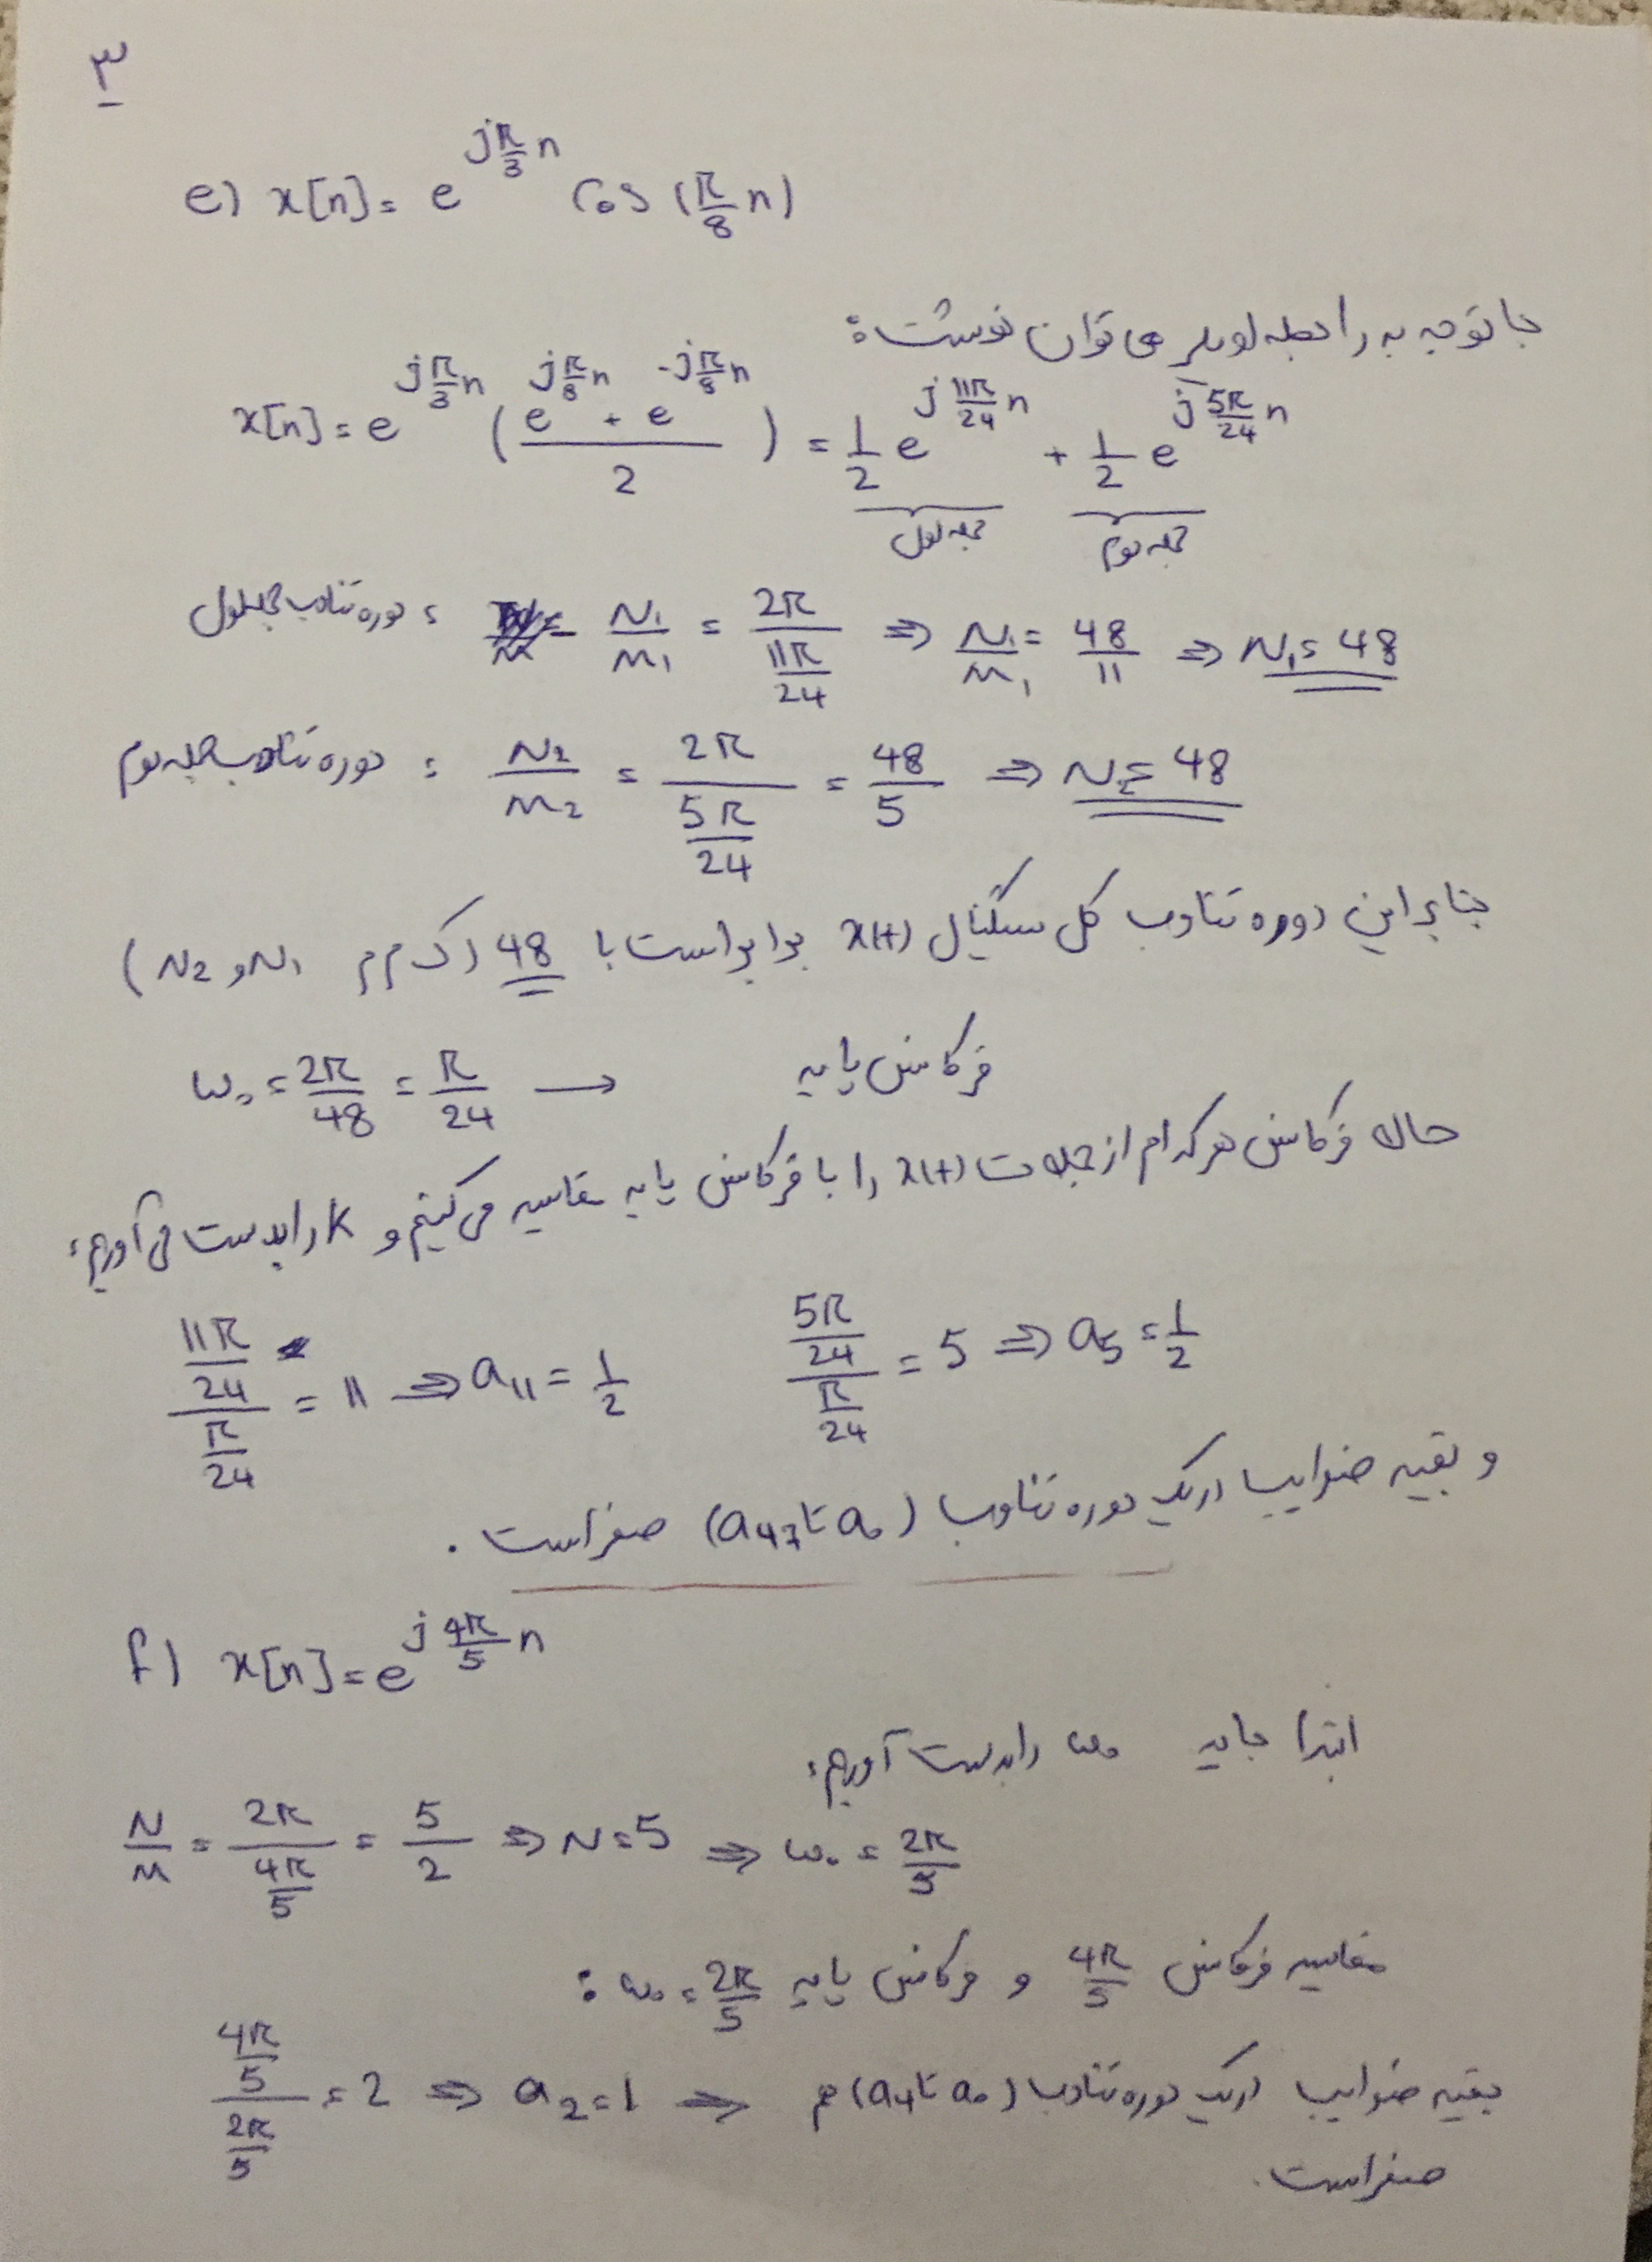 ۳
e) x[n] = e^{j\frac{π}{3}n} Cos(\frac{π}{8}n)
با توجه به رابطه اویلر می توان نوشت:
x[n] = e^{j\frac{π}{3}n} (\frac{e^{j\frac{π}{8}n} + e^{-j\frac{π}{8}n}}{2}) = \frac{1}{2} e^{j\frac{11π}{24}n} + \frac{1}{2} e^{j\frac{5π}{24}n}
جمله اول جمله دوم
دوره تناوب جمله اول: \frac{N_1}{m_1} = \frac{2π}{\frac{11π}{24}} ⇒ \frac{N_1}{m_1} = \frac{48}{11} ⇒ N_1 = 48
دوره تناوب جمله دوم: \frac{N_2}{m_2} = \frac{2π}{\frac{5π}{24}} = \frac{48}{5} ⇒ N_2 = 48
بنابراین دوره تناوب کل سیگنال x(t) برابر است با 48 (ک م م N_1 و N_2)
ω_0 = \frac{2π}{48} = \frac{π}{24} → فرکانس پایه
حال فرکانس هر کدام از جملات x(t) را با فرکانس پایه مقایسه می کنیم و k را بدست می آوریم:
\frac{\frac{11π}{24}}{\frac{π}{24}} = 11 ⇒ a_{11} = \frac{1}{2} \frac{\frac{5π}{24}}{\frac{π}{24}} = 5 ⇒ a_5 = \frac{1}{2}
و بقیه ضرایب در یک دوره تناوب (a_0 تا a_{47}) صفر است.
f) x[n] = e^{j\frac{4π}{5}n}
ابتدا باید ω_0 را بدست آوریم:
\frac{N}{m} = \frac{2π}{\frac{4π}{5}} = \frac{5}{2} ⇒ N = 5 ⇒ ω_0 = \frac{2π}{5}
مقایسه فرکانس \frac{4π}{5} و فرکانس پایه ω_0 = \frac{2π}{5}:
\frac{\frac{4π}{5}}{\frac{2π}{5}} = 2 ⇒ a_2 = 1 ⇒ بقیه ضرایب در یک دوره تناوب (a_0 تا a_4) هم
صفر است.